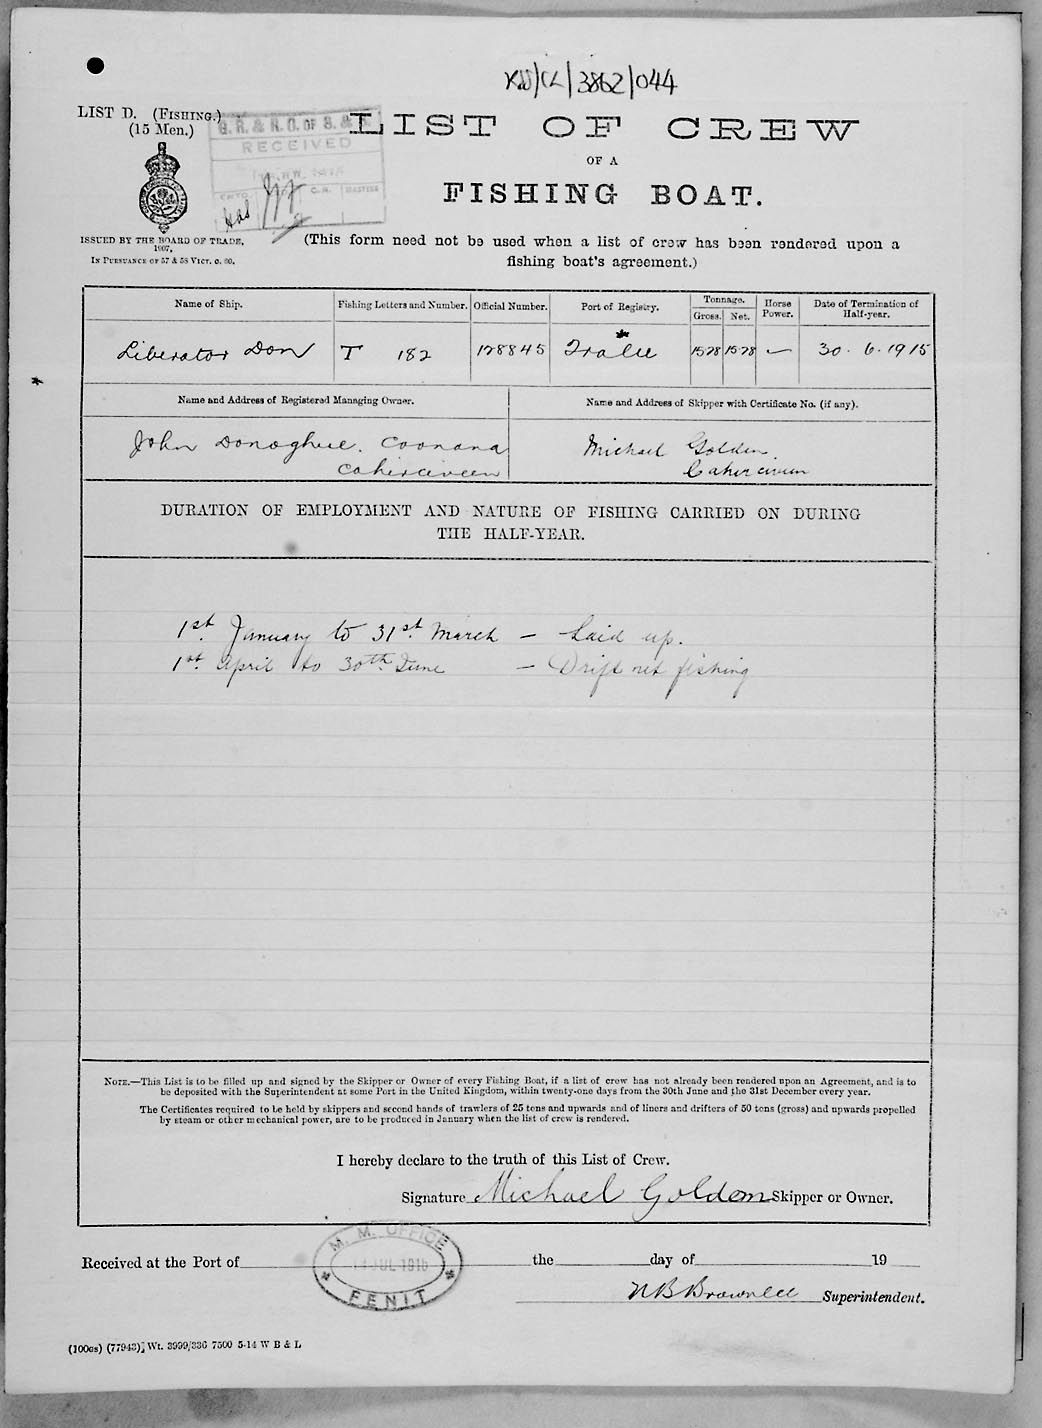 LIST D. (FISHING.)
(15 Men.)
G. R. & R. O. OF S. & S.
RECEIVED
LIST OF CREW
OF A
FISHING BOAT.
ISSUED BY THE BOARD OF TRADE,
1907,
IN PURSUANCE OF 57 & 58 VICT. C. 60.
(This form need not be used when a list of crew has been rendered upon a
fishing boat's agreement.)
Name of Ship. Fishing Letters and Number. Official Number. Port of Registry. Tonnage. Gross. Net. Horse Power. Date of Termination of Half-year.
Liberator Don T 182 128845 Tralee 15.78 15.78 — 30. 6. 1915
Name and Address of Registered Managing Owner. Name and Address of Skipper with Certificate No. (if any).
John Donoghue. Coonana Michael Golden.
Caherciveen Caherciveen
DURATION OF EMPLOYMENT AND NATURE OF FISHING CARRIED ON DURING
THE HALF-YEAR.
1st. January to 31st. March – Laid up.
1st. April to 30th June – Drift net fishing
NOTE.—This List is to be filled up and signed by the Skipper or Owner of every Fishing Boat, if a list of crew has not already been rendered upon an Agreement, and is to
be deposited with the Superintendent at some Port in the United Kingdom, within twenty-one days from the 30th June and the 31st December every year.
The Certificates required to be held by skippers and second hands of trawlers of 25 tons and upwards and of liners and drifters of 50 tons (gross) and upwards propelled
by steam or other mechanical power, are to be produced in January when the list of crew is rendered.
I hereby declare to the truth of this List of Crew.
Signature Michael Golden Skipper or Owner.
M. M. OFFICE
JUL 1915
FENIT
Received at the Port of the day of 19
Superintendent.
(100es) (77943) Wt. 3999/336 7500 5-14 W B & L